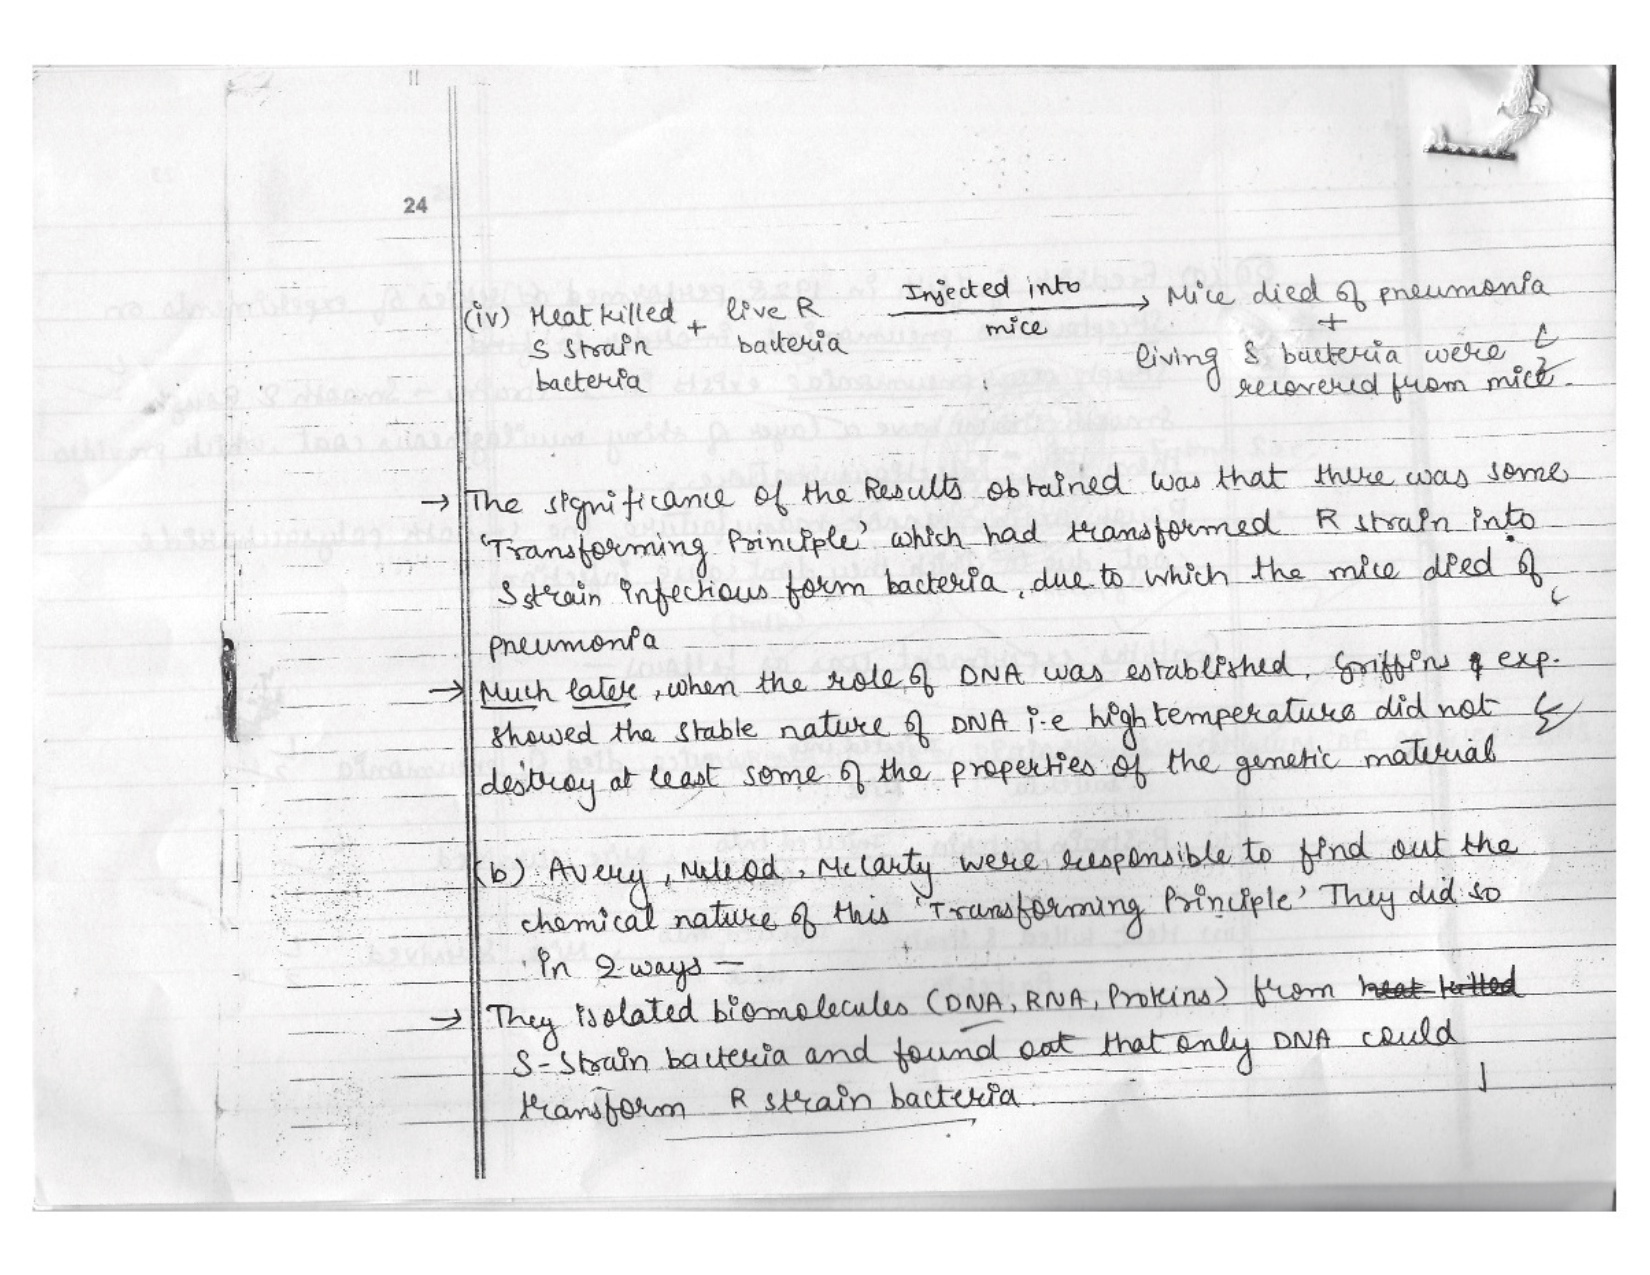 24
(iv) Heat killed + live R Injected into → Mice died of pneumonia
S strain bacteria mice +
bacteria living S bacteria were
recovered from mice.
→ The significance of the Results obtained was that there was some
'Transforming Principle' which had transformed R strain into
S strain infectious form bacteria, due to which the mice died of
pneumonia
→ Much later, when the role of DNA was established, Griffins exp.
showed the stable nature of DNA i.e high temperature did not
destroy at least some of the properties of the genetic material
(b) Avery, McLeod, McCarty were responsible to find out the
chemical nature of this 'Transforming Principle' They did so
in 2 ways —
→ They isolated biomolecules (DNA, RNA, Proteins) from heat killed
S-Strain bacteria and found out that only DNA could
transform R strain bacteria.